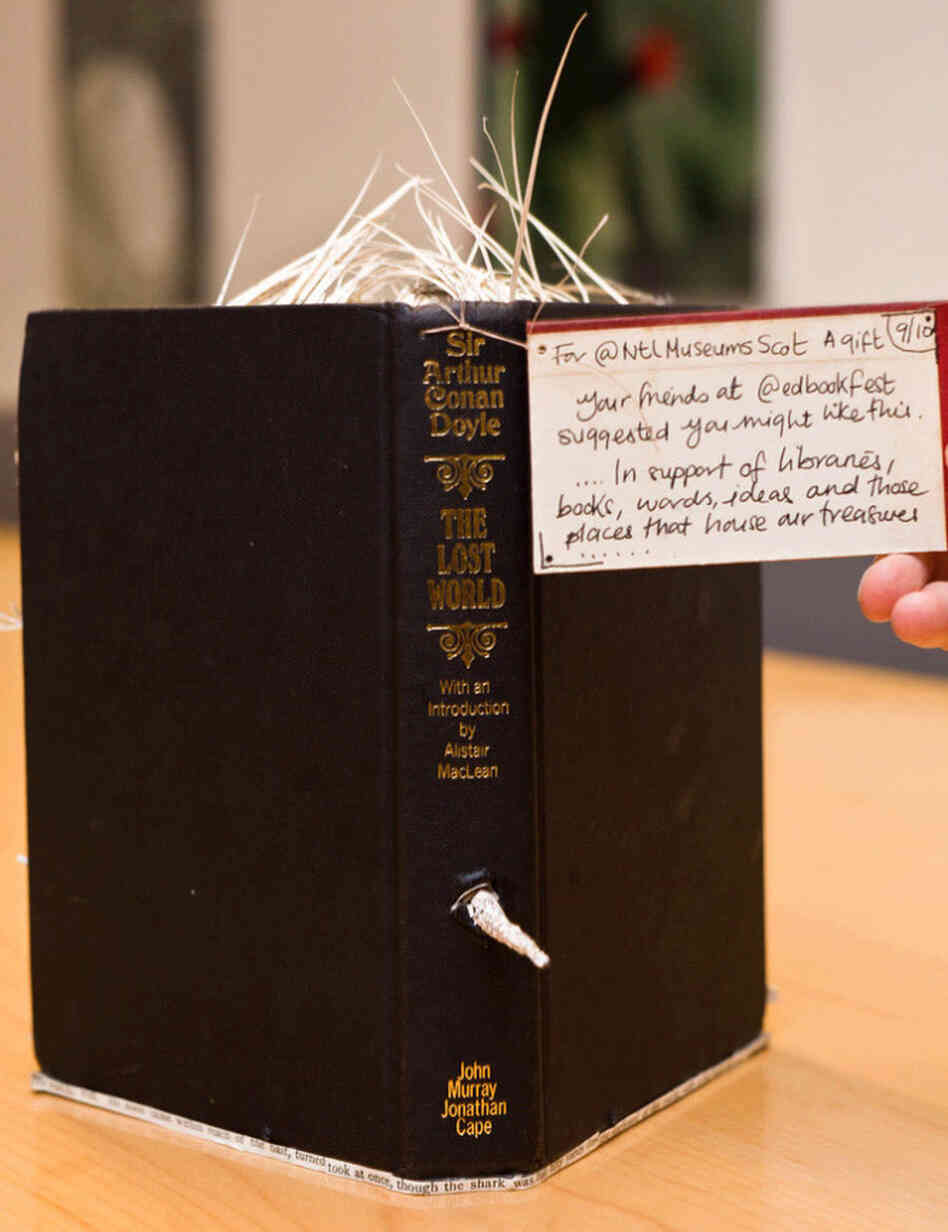 Sir
Arthur
Conan
Doyle
THE
LOST
WORLD
With an
Introduction
by
Alistair
MacLean
John
Murray
Jonathan
Cape
For @NtlMuseumsScot A gift 9/10
Your friends at @edbookfest
suggested you might like this.
.... In support of libraries,
books, words, ideas and those
places that house our treasures
.......
of the last, turned took at once, though the shark was